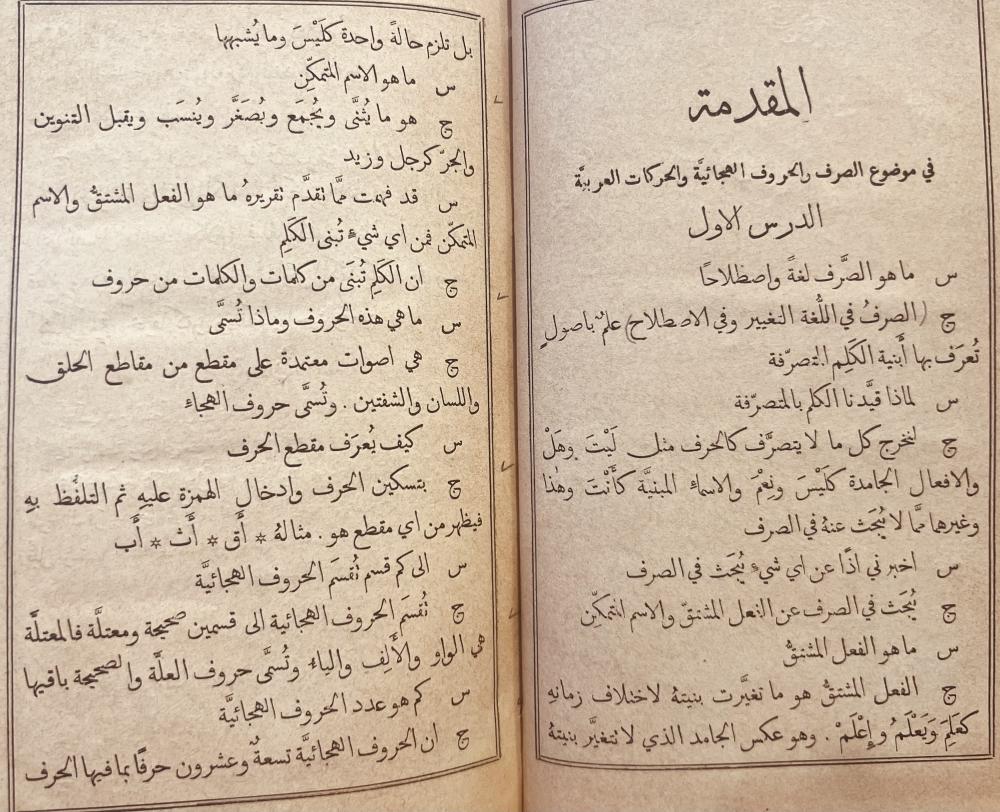 المقدمة
في موضوع الصرف والحروف الهجائيَّة والحركات العربيَّة
الدرس الاول
س ما هو الصَّرف لغةً واصطلاحًا
ج (الصرفُ في اللُّغة التغيير وفي الاصطلاح) علمٌ باصولٍ
تُعرَف بها أَبنية الكَلِم المتصرّفة
س لماذا قيَّدنا الكلم بالمتصرّفة
ج لنخرج كل ما لا يتصرَّف كالحرف مثل لَيْتَ وهَلْ
والافعال الجامدة كلَيْسَ ونِعْمَ والاسماء المبنيَّة كأَنْتَ وهٰذا
وغيرها ممَّا لا يُبحَث عنهُ في الصرف
س اخبرني اذًا عن اي شيءٍ يُبحَث في الصرف
ج يُبحَث في الصرف عن الفعل المشتقّ والاسم المتمكّن
س ما هو الفعل المشتقُّ
ج الفعل المشتقُّ هو ما تغيَّرت بنيتهُ لاختلاف زمانهِ
كعَلِمَ وَيَعْلَمُ وإِعْلَمْ . وهو عكس الجامد الذي لا تتغيَّر بنيتهُ
بل تلزم حالةً واحدة كلَيْسَ وما يُشبهها
س ما هو الاسم المتمكّن
ج هو ما يُثنَّى ويُجمَع ويُصَغَّر ويُنسَب ويقبل التنوين
والجرّ كرجل وزيد
س قد فهمت ممَّا تقدَّم تقريرهُ ما هو الفعل المشتقُّ والاسم
المتمكّن فمن اي شيءٍ تُبنى الكَلِم
ج ان الكَلِم تُبنَى من كلمات والكلمات من حروف
س ما هي هذه الحروف وماذا تُسمَّى
ج هي اصوات معتمدة على مقطع من مقاطع الحلق
واللسان والشفتين . وتُسمَّى حروف الهجاء
س كيف يُعرَف مقطع الحرف
ج بتسكين الحرف وادخال الهمزة عليهِ ثم التلفُّظ بهِ
فيظهر من اي مقطع هو . مثالهُ * أَق * أَث * أَب
س الى كم قسم تُقسَم الحروف الهجائيَّة
ج تُقسَم الحروف الهجائية الى قسمين صحيحة ومعتلَّة فالمعتلَّة
هي الواو والأَلِف والياء وتُسمَّى حروف العلَّة والصحيحة باقيها
س كم هو عدد الحروف الهجائيَّة
ج ان الحروف الهجائيَّة تسعةٌ وعشرون حرفًا بما فيها الحرف